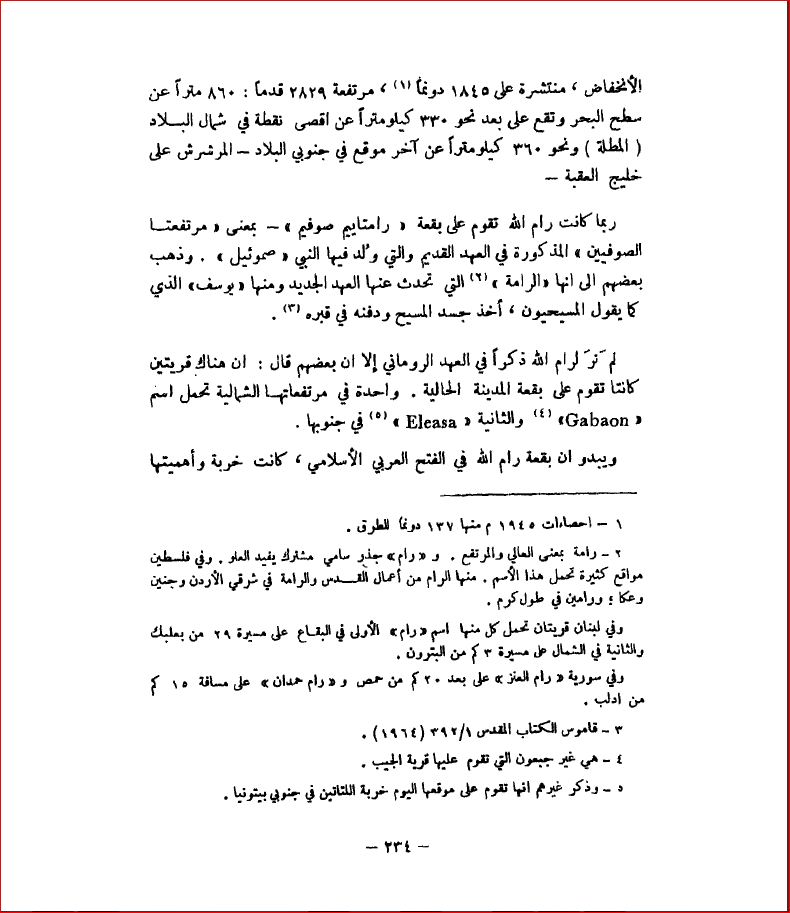 الأنخفاض ، منتشرة على ١٨٤٥ دونماً (١) ، مرتفعة ٢٨٢٩ قدماً : ٨٦٠ متراً عن
سطح البحر وتقع على بعد نحو ٣٣٠ كيلومتراً عن اقصى نقطة في شمال البلاد
( المطلة ) ونحو ٣٦٠ كيلومتراً عن آخر موقع في جنوبي البلاد – المرشرش على
خليج العقبة –
ربما كانت رام الله تقوم على بقعة « رامتاييم صوفيم » – بمعنى « مرتفعتا
الصوفيين » المذكورة في العهد القديم والتي وُلد فيها النبي « صموئيل » . وذهب
بعضهم الى انها «الرامة » (٢) التي تحدث عنها العهد الجديد ومنها «يوسف» الذي
كما يقول المسيحيون ، أخذ جسد المسيح ودفنه في قبره (٣) .
لم نَرَ لرام الله ذكراً في العهد الروماني إلا ان بعضهم قال : ان هناك قريتين
كانتا تقوم على بقعة المدينة الحالية . واحدة في مرتفعاتها الشمالية تحمل اسم
« Gabaon» (٤) والثانية « Eleasa » (٥) في جنوبها .
ويبدو ان بقعة رام الله في الفتح العربي الأسلامي ، كانت خربة وأهميتها
١ – احصاءات ١٩٤٥ م منها ١٣٧ دونماً للطرق .
٢ – رامة بمعنى العالي والمرتفع . و «رام» جذر سامي مشترك يفيد العلو . وفي فلسطين
مواقع كثيرة تحمل هذا الأسم . منها الرام من أعمال القدس والرامة في شرقي الأردن وجنين
وعكا ؛ ورامين في طول كرم .
وفي لبنان قريتان تحمل كل منها اسم «رام» الأولى في البقاع على مسيرة ٢٩ من بعلبك
والثانية في الشمال على مسيرة ٣ كم من البترون .
وفي سورية « رام العنز » على بعد ٢٠ كم من حمص و « رام حمدان » على مسافة ١٥ كم
من ادلب .
٣ – قاموس الكتاب المقدس ٣٩٢/١ (١٩٦٤) .
٤ – هي غير جبعون التي تقوم عليها قرية الجيب .
٥ – وذكر غيرهم انها تقوم على موقعها اليوم خربة اللتاتين في جنوبي بيتونيا .
– ٢٣٤ –